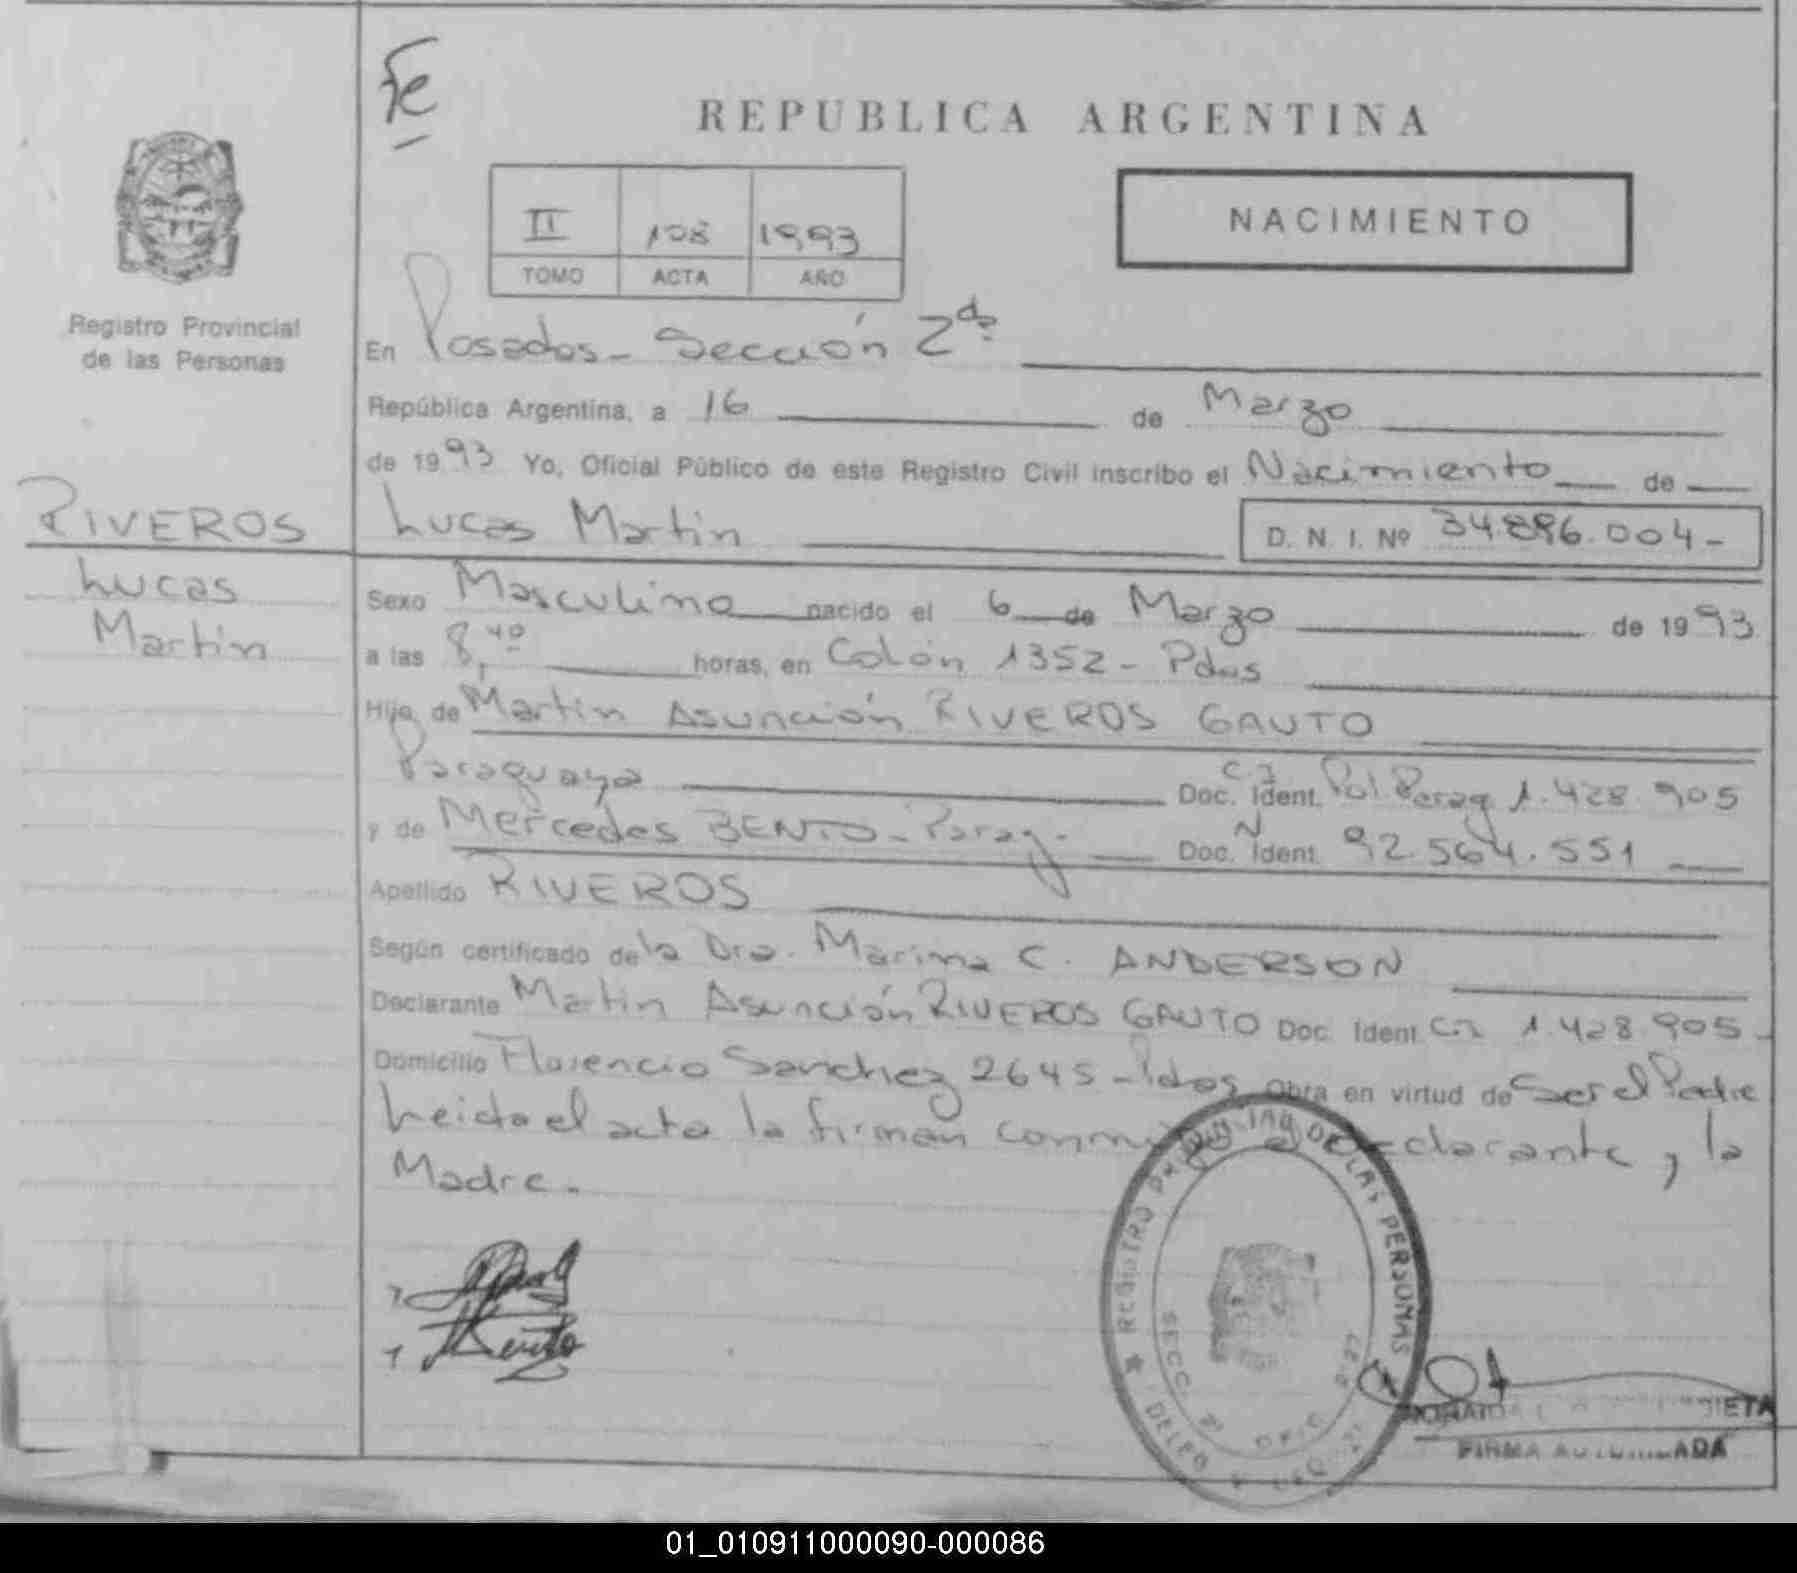 Fe
REPUBLICA ARGENTINA
II 108 1993
TOMO ACTA AÑO
NACIMIENTO
Registro Provincial
de las Personas
En Posadas - Sección 2da
República Argentina, a 16 de Marzo
de 1993 Yo, Oficial Público de este Registro Civil inscribo el Nacimiento de
RIVEROS
Lucas
Martin
Lucas Martin D. N. I. Nº 34.896.004-
Sexo Masculino nacido el 6 de Marzo de 1993
a las 8,40 horas, en Colón 1352 - Pdas
Hijo de Martin Asunción RIVEROS GAUTO
Paraguaya Doc. Ident. C.I Pol. Parag 1.428.905
y de Mercedes BENTO - Parag. Doc. N Ident. 92.564.551
Apellido RIVEROS
Según certificado de la Dra. Marina C. ANDERSON
Declarante Martin Asunción RIVEROS GAUTO Doc. Ident. C.I 1.428.905-
Domicilio Florencio Sanchez 2645 - Pdas Obra en virtud de Ser el Padre
Leida el acta la firman conmigo el Declarante y la
Madre.
REGISTRO DE LAS PERSONAS
SECC. 2ª
OFIC
FIRMA AUTORIZADA
01_010911000090-000086